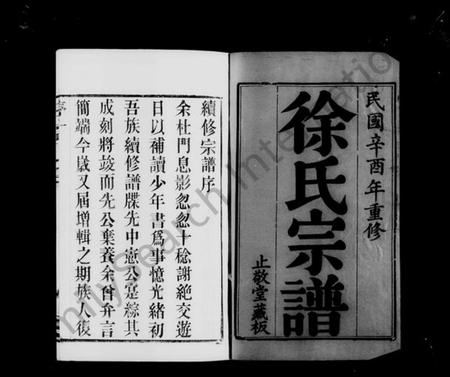 民國辛酉年重修
徐氏宗譜
止敬堂藏板
續修宗譜序
余杜門息影忽忽十稔謝絶交遊
日以補讀少年書爲事憶光緒初
吾族續修譜牒先中憲公寔綜其
成刻將竣而先公棄養余曾弁言
簡端今歲又屆增輯之期族人復
序一
FamilySearch International